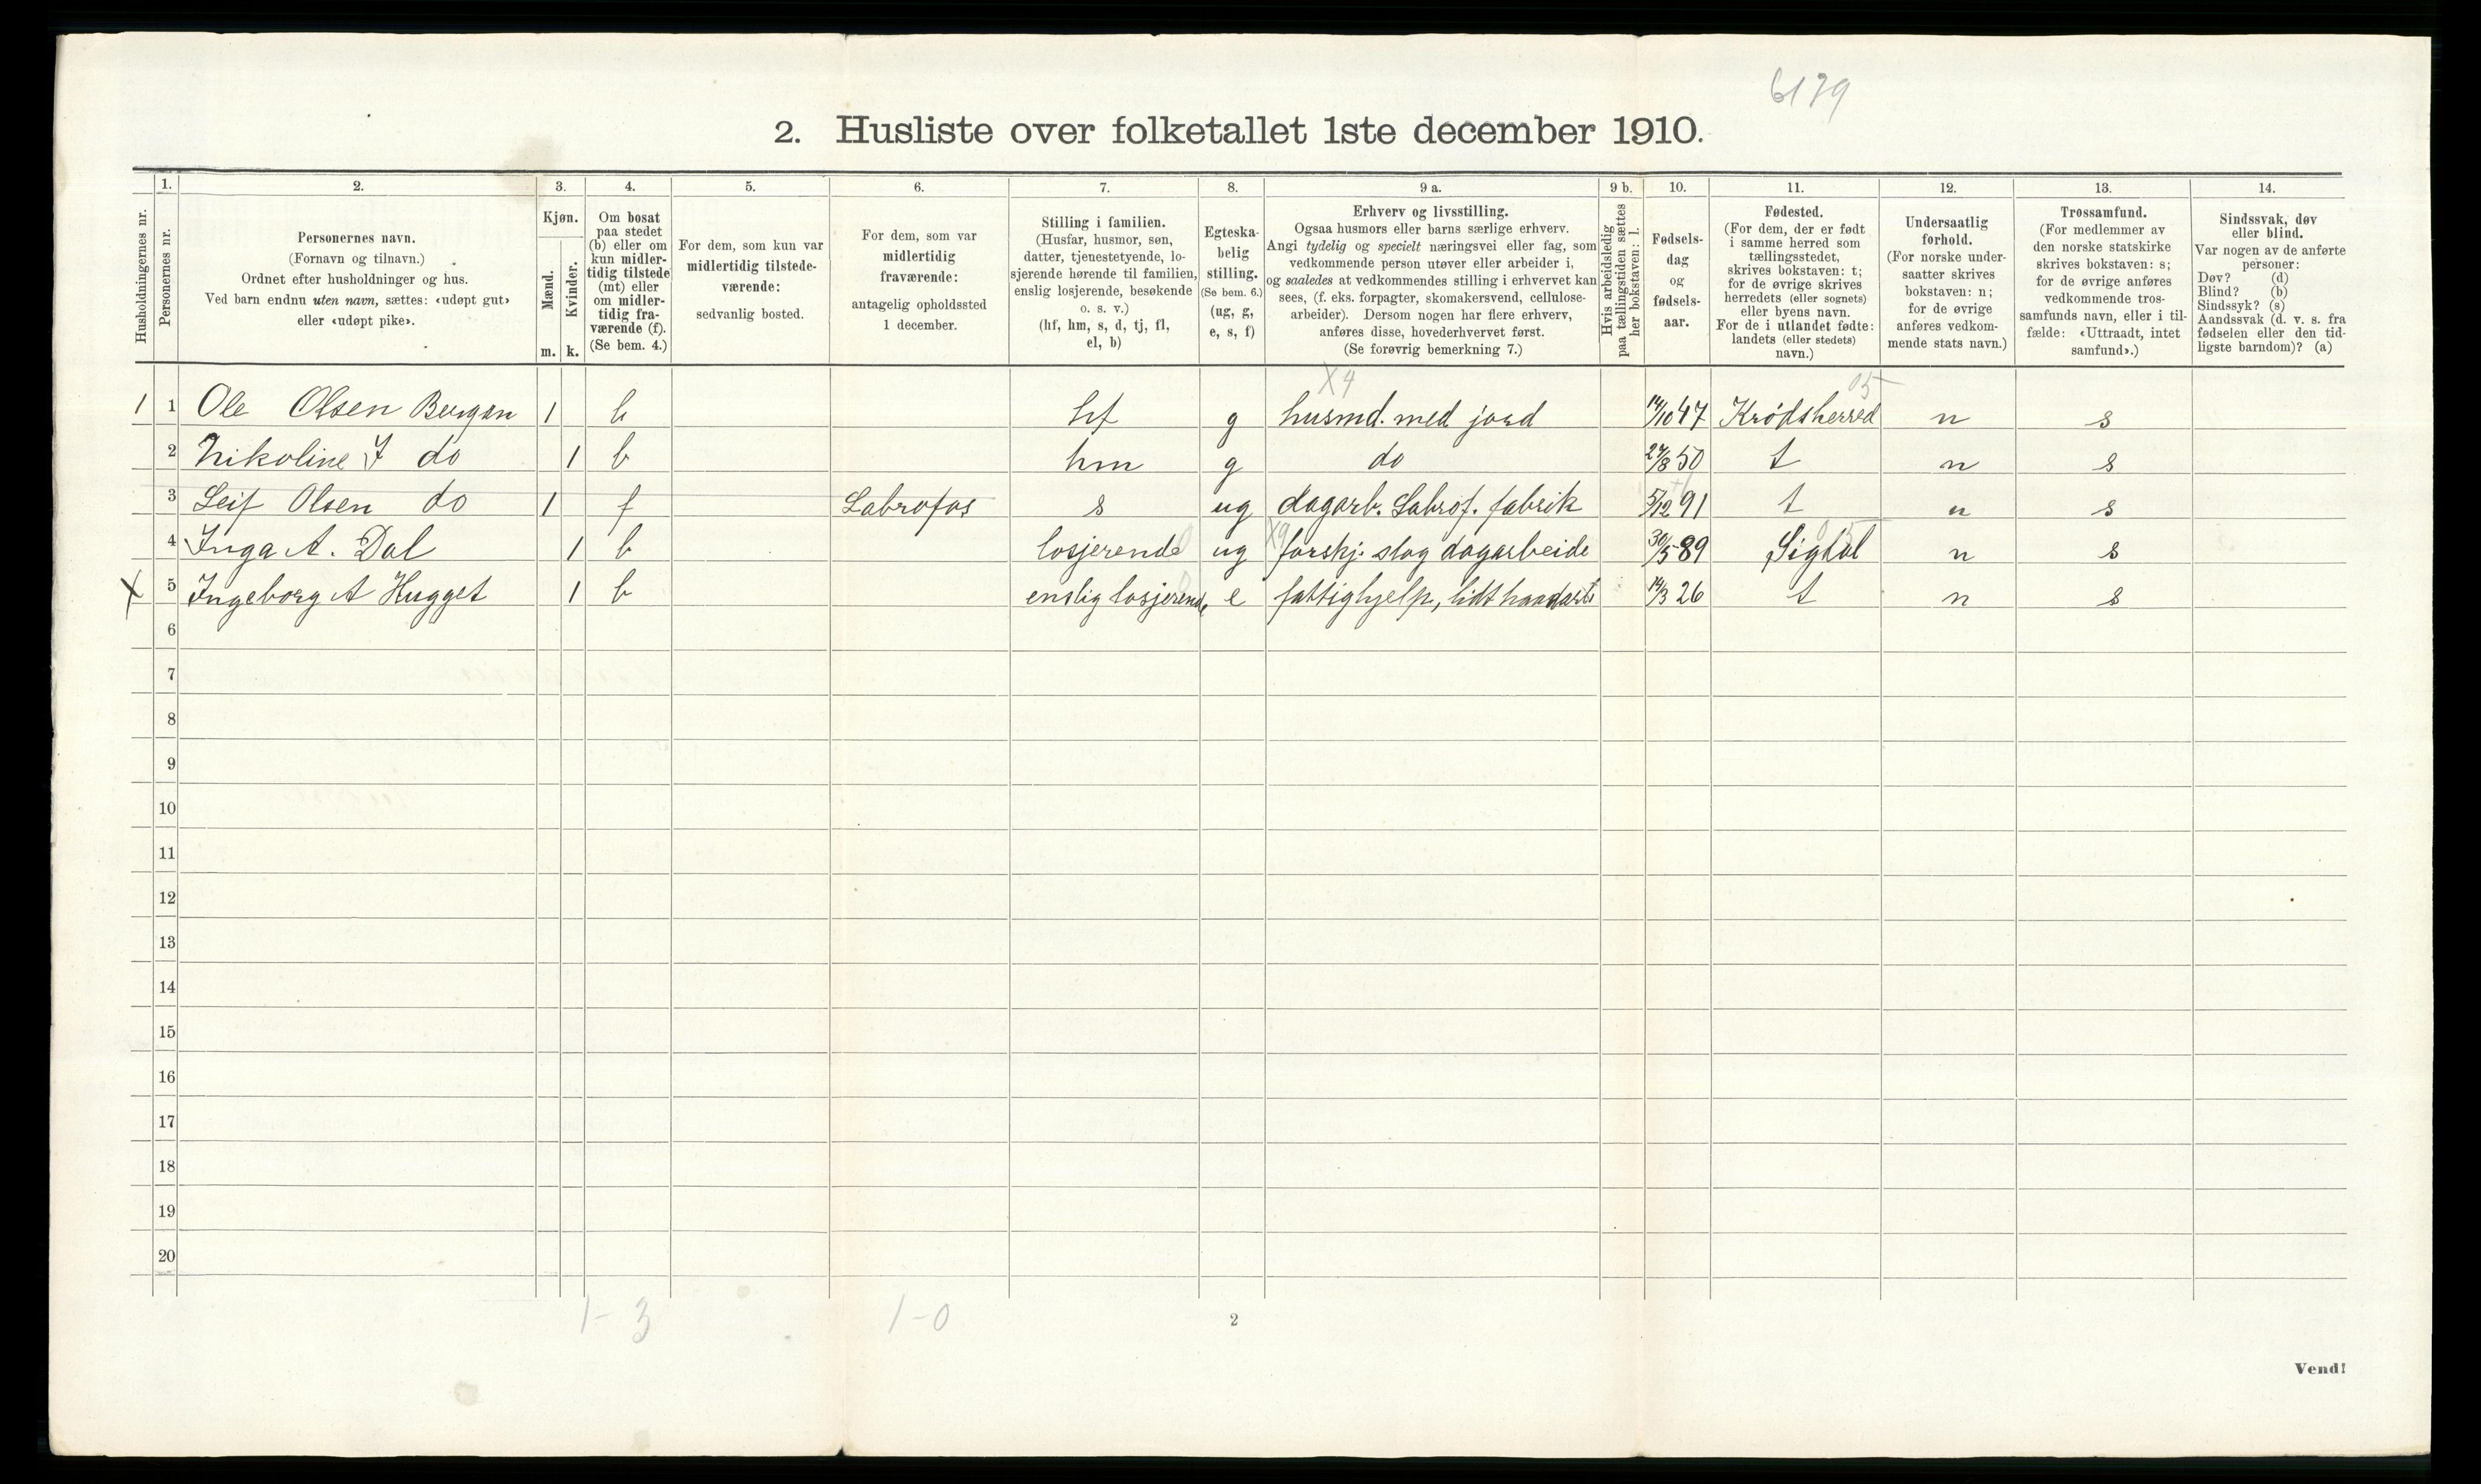 6179
2. Husliste over folketallet 1ste december 1910.
1. 2. 3. 4. 5. 6. 7. 8. 9 a. 9 b. 10. 11. 12. 13. 14.
Husholdningernes nr.
Personernes nr.
Personernes navn.
(Fornavn og tilnavn.)
Ordnet efter husholdninger og hus.
Ved barn endnu uten navn, sættes: «udøpt gut»
eller «udøpt pike».
Kjøn.
Mænd.
Kvinder.
m. k.
Om bosat
paa stedet
(b) eller om
kun midler-
tidig tilstede
(mt) eller
om midler-
tidig fra-
værende (f).
(Se bem. 4.)
For dem, som kun var
midlertidig tilstede-
værende:
sedvanlig bosted.
For dem, som var
midlertidig
fraværende:
antagelig opholdssted
1 december.
Stilling i familien.
(Husfar, husmor, søn,
datter, tjenestetyende, lo-
sjerende hørende til familien,
enslig losjerende, besøkende
o. s. v.)
(hf, hm, s, d, tj, fl,
el, b)
Egteska-
belig
stilling.
(Se bem. 6.)
(ug, g,
e, s, f)
Erhverv og livsstilling.
Ogsaa husmors eller barns særlige erhverv.
Angi tydelig og specielt næringsvei eller fag, som
vedkommende person utøver eller arbeider i,
og saaledes at vedkommendes stilling i erhvervet kan
sees, (f. eks. forpagter, skomakersvend, cellulose-
arbeider). Dersom nogen har flere erhverv,
anføres disse, hovederhvervet først.
(Se forøvrig bemerkning 7.)
Hvis arbeidsledig
paa tællingstiden sættes
her bokstaven: l.
Fødsels-
dag
og
fødsels-
aar.
Fødested.
(For dem, der er født
i samme herred som
tællingsstedet,
skrives bokstaven: t;
for de øvrige skrives
herredets (eller sognets)
eller byens navn.
For de i utlandet fødte:
landets (eller stedets)
navn.)
Undersaatlig
forhold.
(For norske under-
saatter skrives
bokstaven: n;
for de øvrige
anføres vedkom-
mende stats navn.)
Trossamfund.
(For medlemmer av
den norske statskirke
skrives bokstaven: s;
for de øvrige anføres
vedkommende tros-
samfunds navn, eller i til-
fælde: «Uttraadt, intet
samfund».)
Sindssvak, døv
eller blind.
Var nogen av de anførte
personer:
Døv? (d)
Blind? (b)
Sindssyk? (s)
Aandssvak (d. v. s. fra
fødselen eller den tid-
ligste barndom)? (a)
X4 05
1 1 Ole Olsen Bergan 1 b hf g husmd. med jord 14/10 47 Krødsherred n s
2 Nikoline I do 1 b hm g do 27/8 50 t n s
3 Leif Olsen do 1 f Labrofos s ug dagarb. Labrof. fabrik 5/12 91 t n s
4 Inga A. Dal 1 b losjerende ug X9 forskj. slag dagarbeide 30/5 89 Sigdal n s
X 5 Ingeborg A Hugget 1 b enslig losjerende e fattighjelp, lidt haandarb 14/3 26 t n s
6
7
8
9
10
11
12
13
14
15
16
17
18
19
20
1-3 1-0
2
Vend!